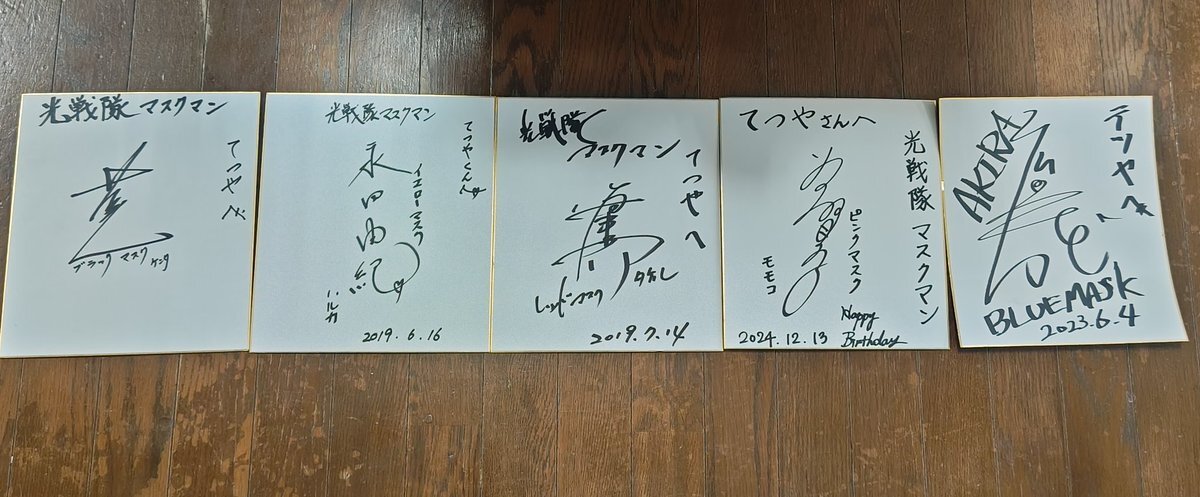 光戦隊 マスクマン
てつやへ
ブラックマスク ケンタ
光戦隊マスクマン
てつやくんへ
イエローマスク
永田由紀
ハルカ
2019.6.16
光戦隊
マスクマン
てつやへ
レッドマスク
タケル
2019.7.14
てつやさんへ
光戦隊 マスクマン
ピンクマスク
モモコ
2024.12.13
Happy
Birthday
テツヤへ
AKIRA
BLUE MASK
2023.6.4